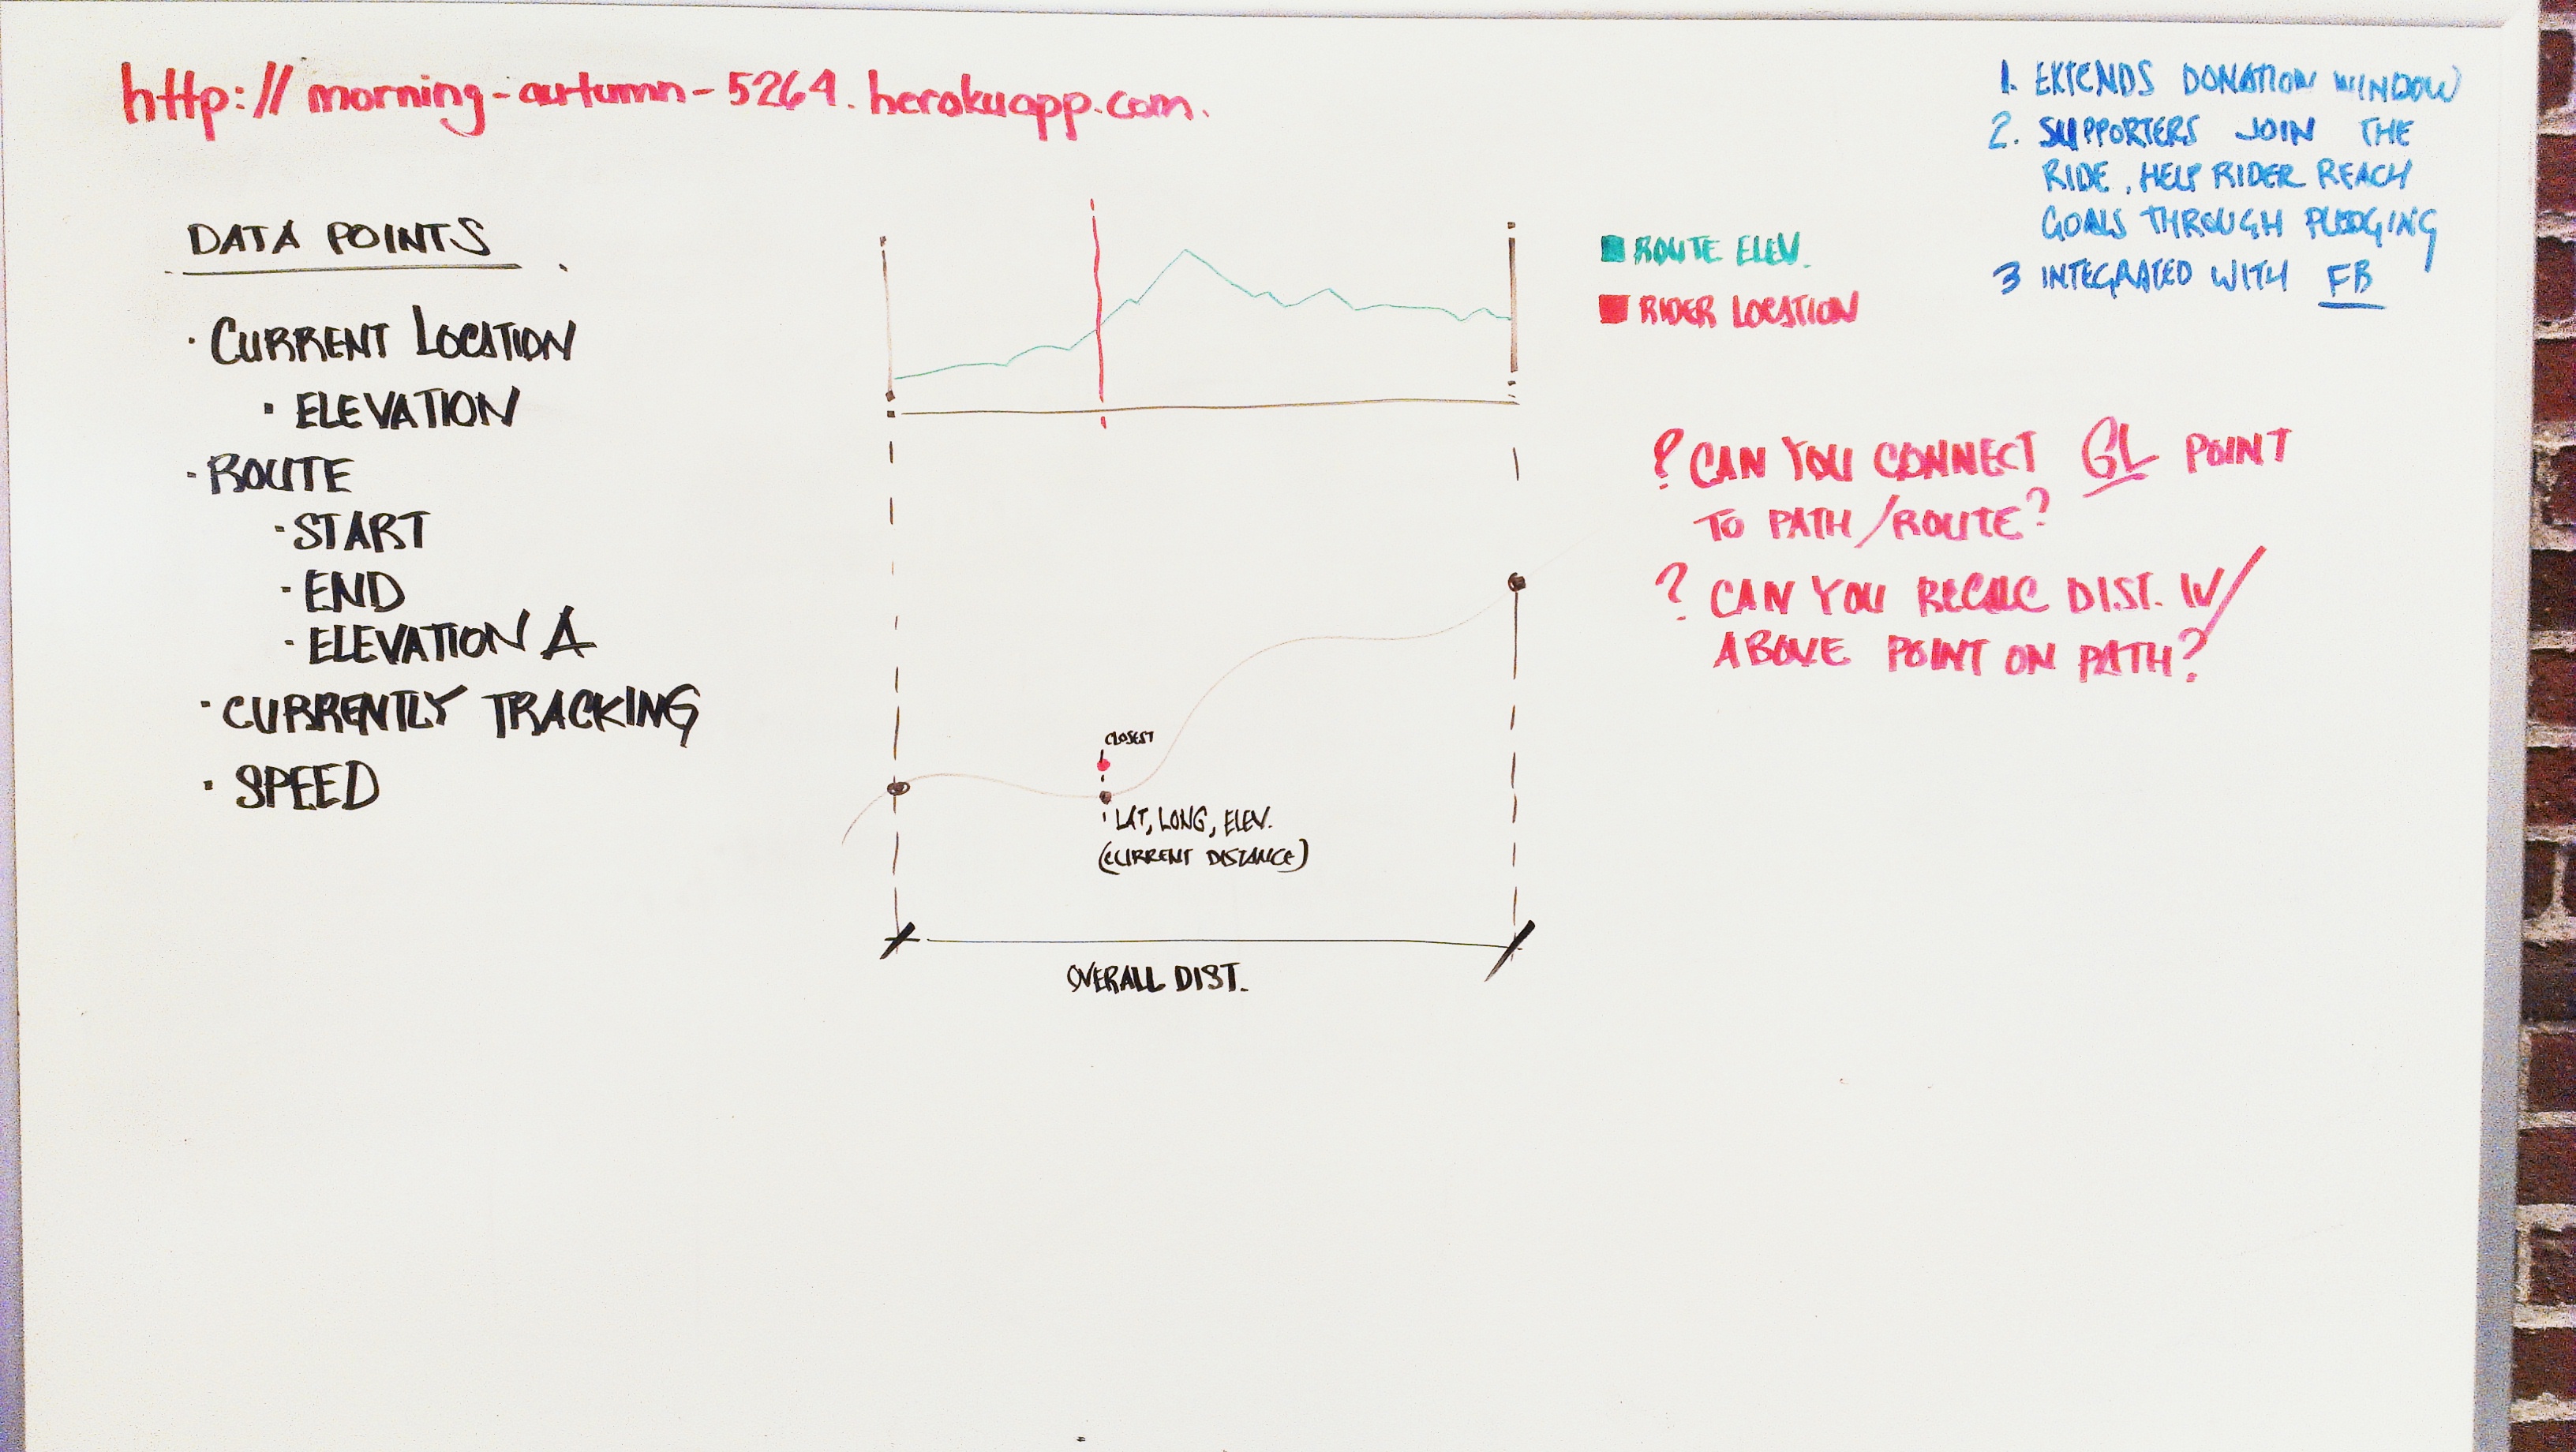 http://morning-autumn-5264.herokuapp.com.
DATA POINTS
· CURRENT LOCATION
· ELEVATION
- ROUTE
- START
- END
- ELEVATION Δ
· CURRENTLY TRACKING
· SPEED
ROUTE ELEV.
RIDER LOCATION
CLOSEST
LAT, LONG, ELEV.
(CURRENT DISTANCE)
OVERALL DIST.
1. EXTENDS DONATION WINDOW
2. SUPPORTERS JOIN THE
RIDE, HELP RIDER REACH
GOALS THROUGH PLEDGING
3 INTEGRATED WITH FB
? CAN YOU CONNECT GL POINT
TO PATH/ROUTE?
? CAN YOU RECALC DIST. W/
ABOVE POINT ON PATH?